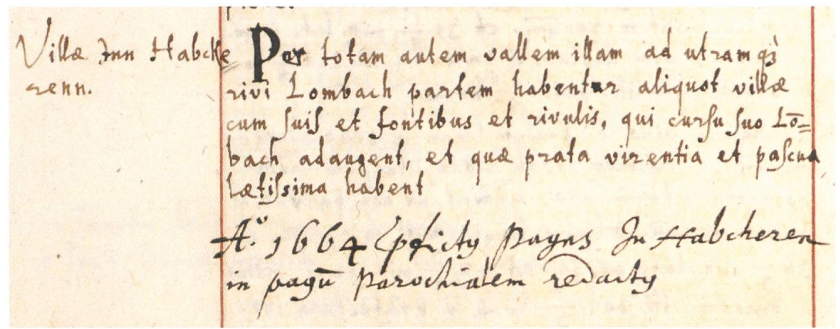 Villæ Jnn Habcke=
renn.
Per totam autem vallem illam ad utramq;
rivi Lombach partem habentur aliquot villæ
cum suis et fontibus et rivulis, qui cursu suo Lō=
bach adaugent, et quæ prata virentia et pascua
lætissima habent
A.º 1664 pagus In Habcheren
in pagū parochialem redacty